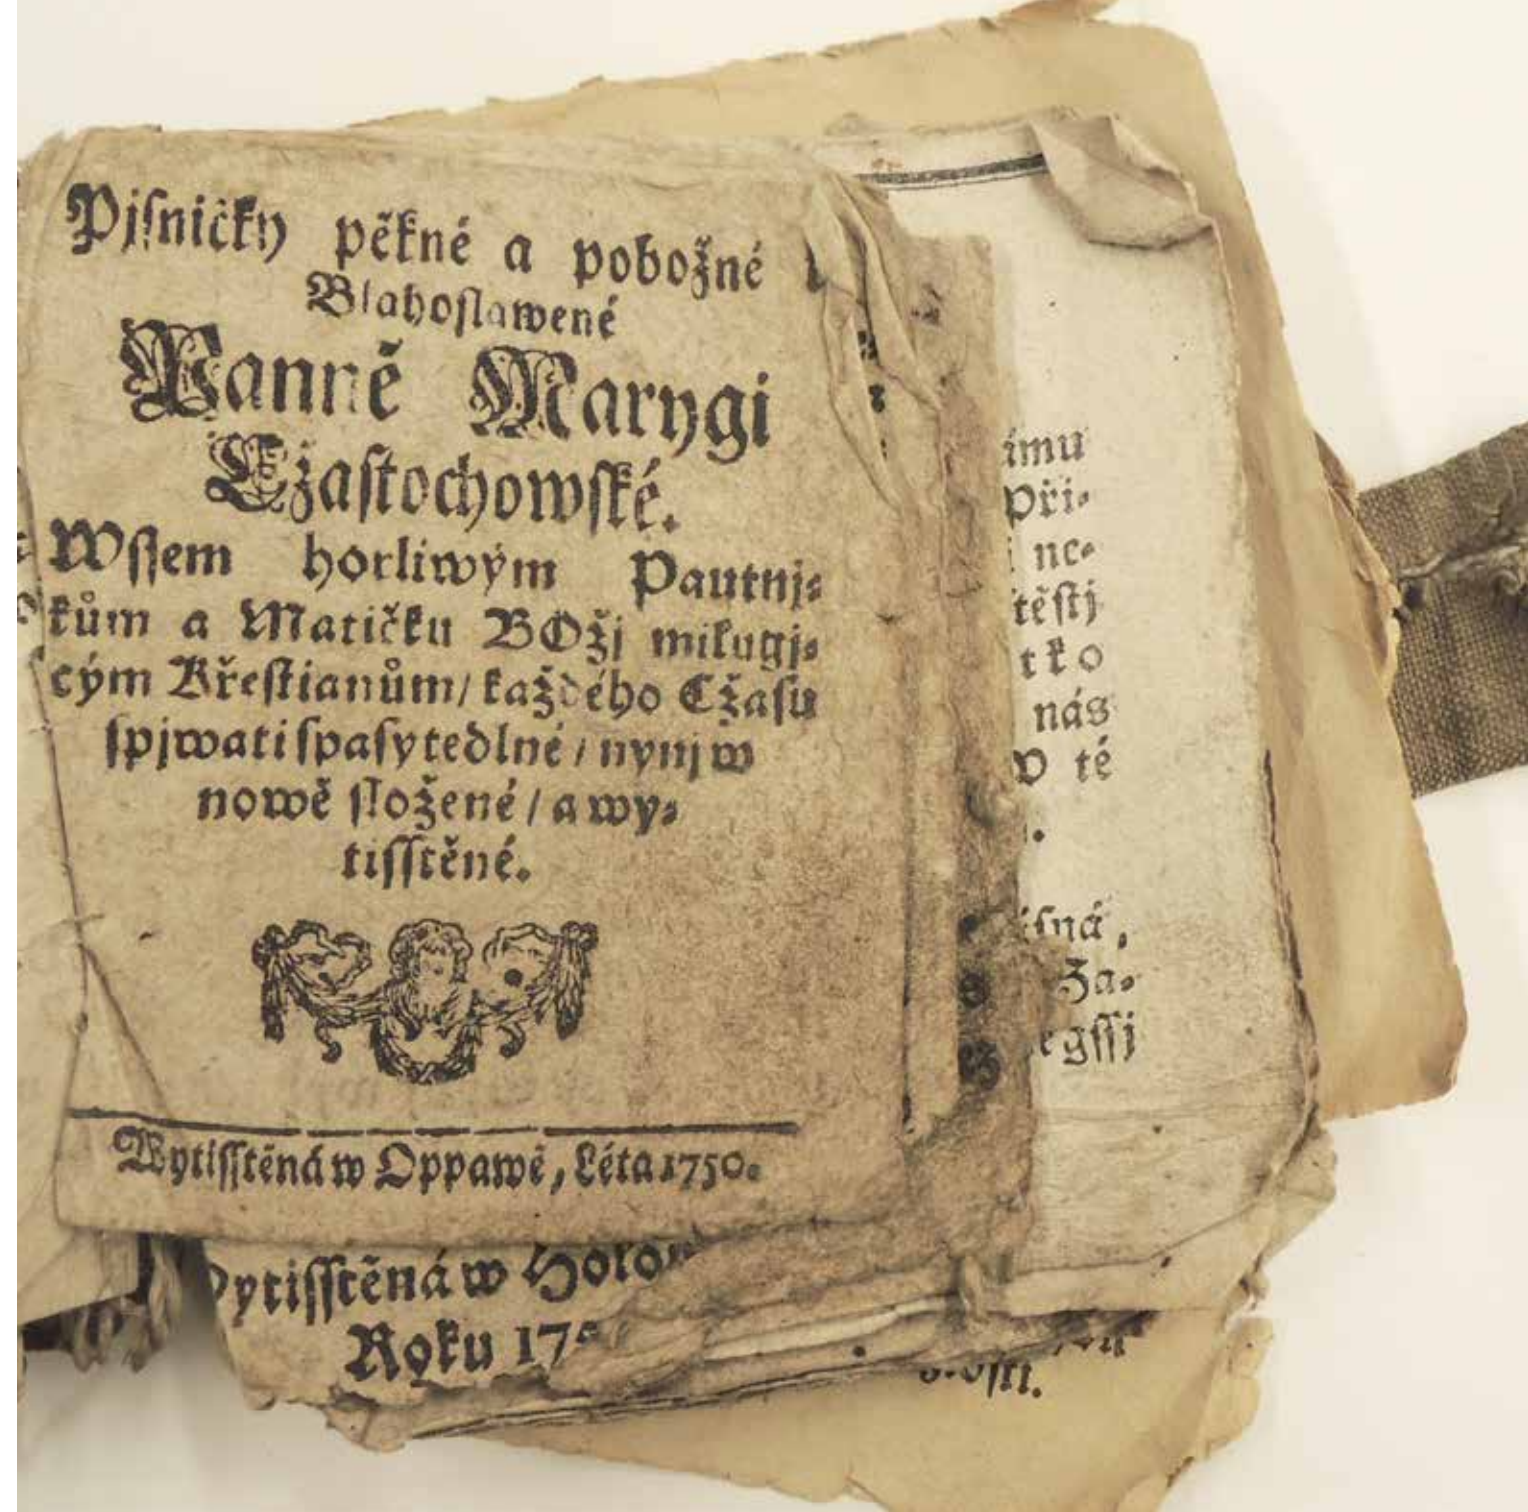 Pjſničky pěkné a pobožné
Blahoſlawené
Panně Marygi
Cžaſtochowſké.
Wſſem horliwým Pautnj⸗
kům a Matičku BOžj milugj⸗
cým Křeſtianům/ každého Cžaſu
ſpjwati ſpaſytedlné / nynj w
nowě ſložené / a wy⸗
tiſſtěné.
Wytiſſtěná w Oppawě, Léta 1750.
ytiſſtěná w Holo
Roku 17
ímu
Při⸗
ne⸗
těſtj
tko
nás
té
ſná,
Za⸗
egſſj